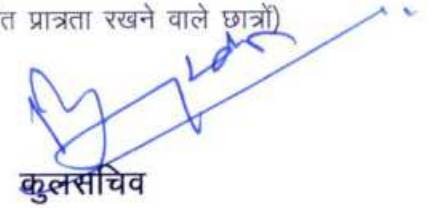 त प्रात्रता रखने वाले छात्रों)
कुलसचिव